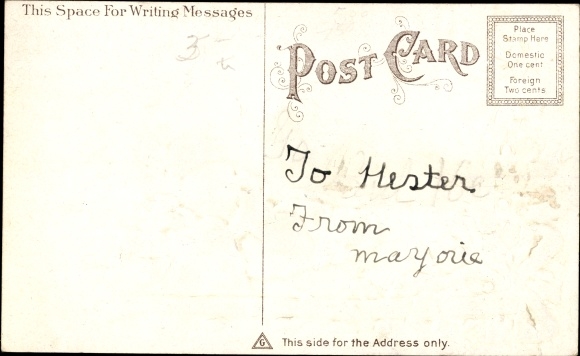 This Space For Writing Messages
POST CARD
Place
Stamp Here
Domestic
One cent
Foreign
Two cents
To Hester
From
marjorie
G
This side for the Address only.